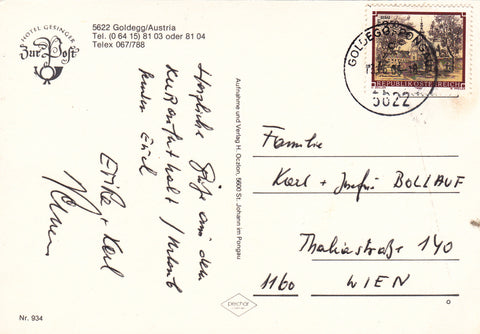 HOTEL GESINGER
Zur Post
5622 Goldegg/Austria
Tel. (0 64 15) 81 03 oder 81 04
Telex 067/788
Herzliche Grüße aus dem
Kuraufenthalt / Urlaub
senden Euch
Erika + Karl
Nr. 934
Aufnahme und Verlag H. Oczlon, 5600 St. Johann im Pongau
REPUBLIK ÖSTERREICH
5622
Familie
Karl + Josefine BOLLAUF
Thaliastraße 140
1160 WIEN